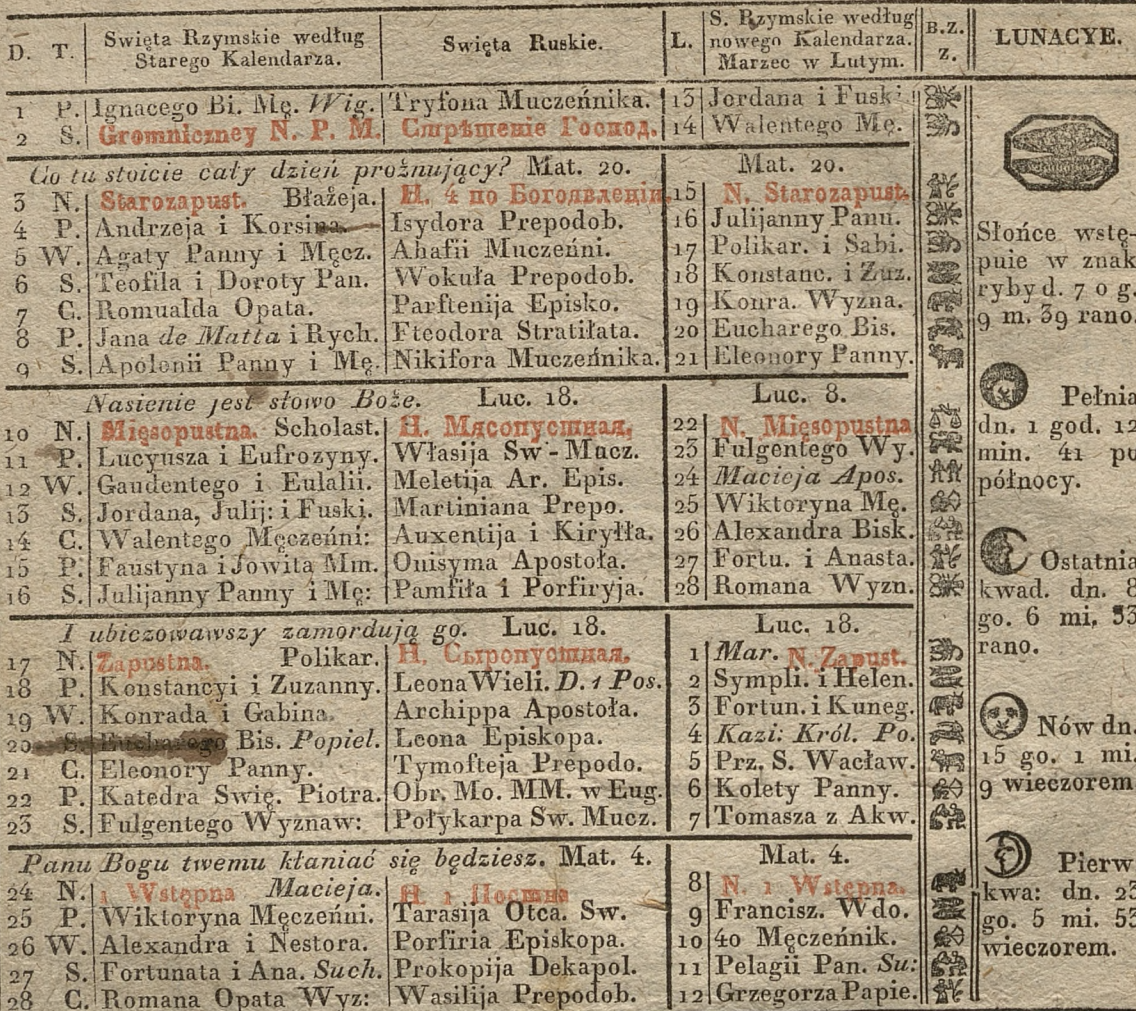 D. T. Swięta Rzymskie według Starego Kalendarza. Swięta Ruskie. L. S. Rzymskie według nowego Kalendarza. Marzec w Lutym. B.Z. z. LUNACYE.
1 P. Ignacego Bi. Mę. Wig. Tryfona Muczeńnika. 13 Jordana i Fuski
2 S. Gromniczney N. P. M. Стрѣтеніе Господ. 14 Walentego Mę.
Co tu stoicie cały dzień prożnujący? Mat. 20. Mat. 20.
3 N. Starozapust. Błażeja. Н. 4 по Богоявленіи. 15 N. Starozapust.
4 P. Andrzeja i Korsina. Isydora Prepodob. 16 Julijanny Pann.
5 W. Agaty Panny i Męcz. Ahafii Muczeńni. 17 Polikar. i Sabi.
6 S. Teofila i Doroty Pan. Wokuła Prepodob. 18 Konstanc. i Zuz.
7 C. Romualda Opata. Parftenija Episko. 19 Konra. Wyzna.
8 P. Jana de Matta i Rych. Fteodora Stratiłata. 20 Eucharego Bis.
9 S. Apolonii Panny i Mę. Nikifora Muczeńnika. 21 Eleonory Panny.
Nasienie jest słowo Boże. Luc. 18. Luc. 8.
10 N. Mięsopustna. Scholast. Н. Мясопустная. 22 N. Mięsopustna
11 P. Lucyusza i Eufrozyny. Własija Sw-Mucz. 23 Fulgentego Wy.
12 W. Gaudentego i Eulalii. Meletija Ar. Epis. 24 Macieja Apos.
13 S. Jordana, Julij: i Fuski. Martiniana Prepo. 25 Wiktoryna Mę.
14 C. Walentego Męczeńni: Auxentija i Kiryłła. 26 Alexandra Bisk.
15 P. Faustyna i Jowita Mm. Onisyma Apostoła. 27 Fortu. i Anasta.
16 S. Julijanny Panny i Mę: Pamfiła i Porfiryja. 28 Romana Wyzn.
I ubiczowawszy zamordują go. Luc. 18. Luc. 18.
17 N. Zapustna. Polikar. Н. Сыропустная. 1 Mar. N. Zapust.
18 P. Konstancyi i Zuzanny. Leona Wieli. D. 1 Pos. 2 Sympli. i Helen.
19 W. Konrada i Gabina. Archippa Apostoła. 3 Fortun. i Kuneg.
20 S. Eucharego Bis. Popiel. Leona Episkopa. 4 Kazi: Król. Po.
21 C. Eleonory Panny. Tymofteja Prepodo. 5 Prz. S. Wacław.
22 P. Katedra Swię. Piotra. Obr. Mo. MM. w Eug. 6 Kolety Panny.
23 S. Fulgentego Wyznaw: Połykarpa Sw. Mucz. 7 Tomasza z Akw.
Panu Bogu twemu kłaniać się będziesz. Mat. 4. Mat. 4.
24 N. 1 Wstępna Macieja. Н. 1 Постна 8 N. 1 Wstępna.
25 P. Wiktoryna Męczeńni. Tarasija Otca. Sw. 9 Francisz. Wdo.
26 W. Alexandra i Nestora. Porfiria Episkopa. 10 40 Męczeńnik.
27 S. Fortunata i Ana. Such. Prokopija Dekapol. 11 Pelagii Pan. Su:
28 C. Romana Opata Wyz: Wasilija Prepodob. 12 Grzegorza Papie.
Słońce wstę-
puie w znak
ryby d. 7 o g.
9 m. 39 rano.
Pełnia
dn. 1 god. 12
min. 41 po
północy.
Ostatnia
kwad. dn. 8
go. 6 mi. 53
rano.
Nów dn.
15 go. 1 mi.
9 wieczorem
Pierw
kwa: dn. 23
go. 5 mi. 53
wieczorem.